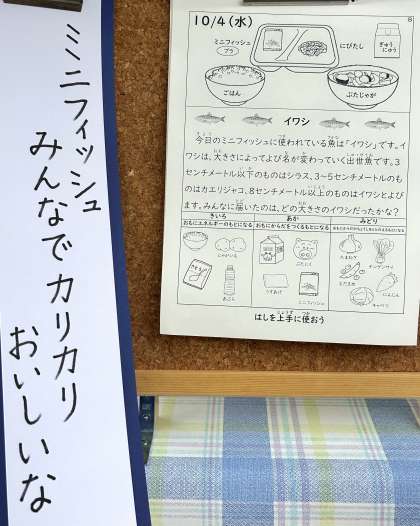 ミニフィッシュ
みんなでカリカリ
おいしいな
10/4(水)
8
ミニフィッシュ
プラ
にびたし
ぎゅうにゅう
ごはん
ぶたじゃが
イワシ
今日のミニフィッシュに使われている魚は「イワシ」です。イ
ワシは、大きさによってよび名が変わっていく出世魚です。3
センチメートル以下のものはシラス、3~5センチメートルのも
のはカエリジャコ、8センチメートル以上のものはイワシとよび
ます。みんなに届いたのは、どの大きさのイワシだったかな?
きいろ
あか
みどり
おもにエネルギーのもとになる
おもにからだをつくるもとになる
じゃがいも
ぶたにく
たまねぎ
チンゲンサイ
うすあげ
ミニフィッシュ
にんじん
キャベツ
はしを上手に使おう